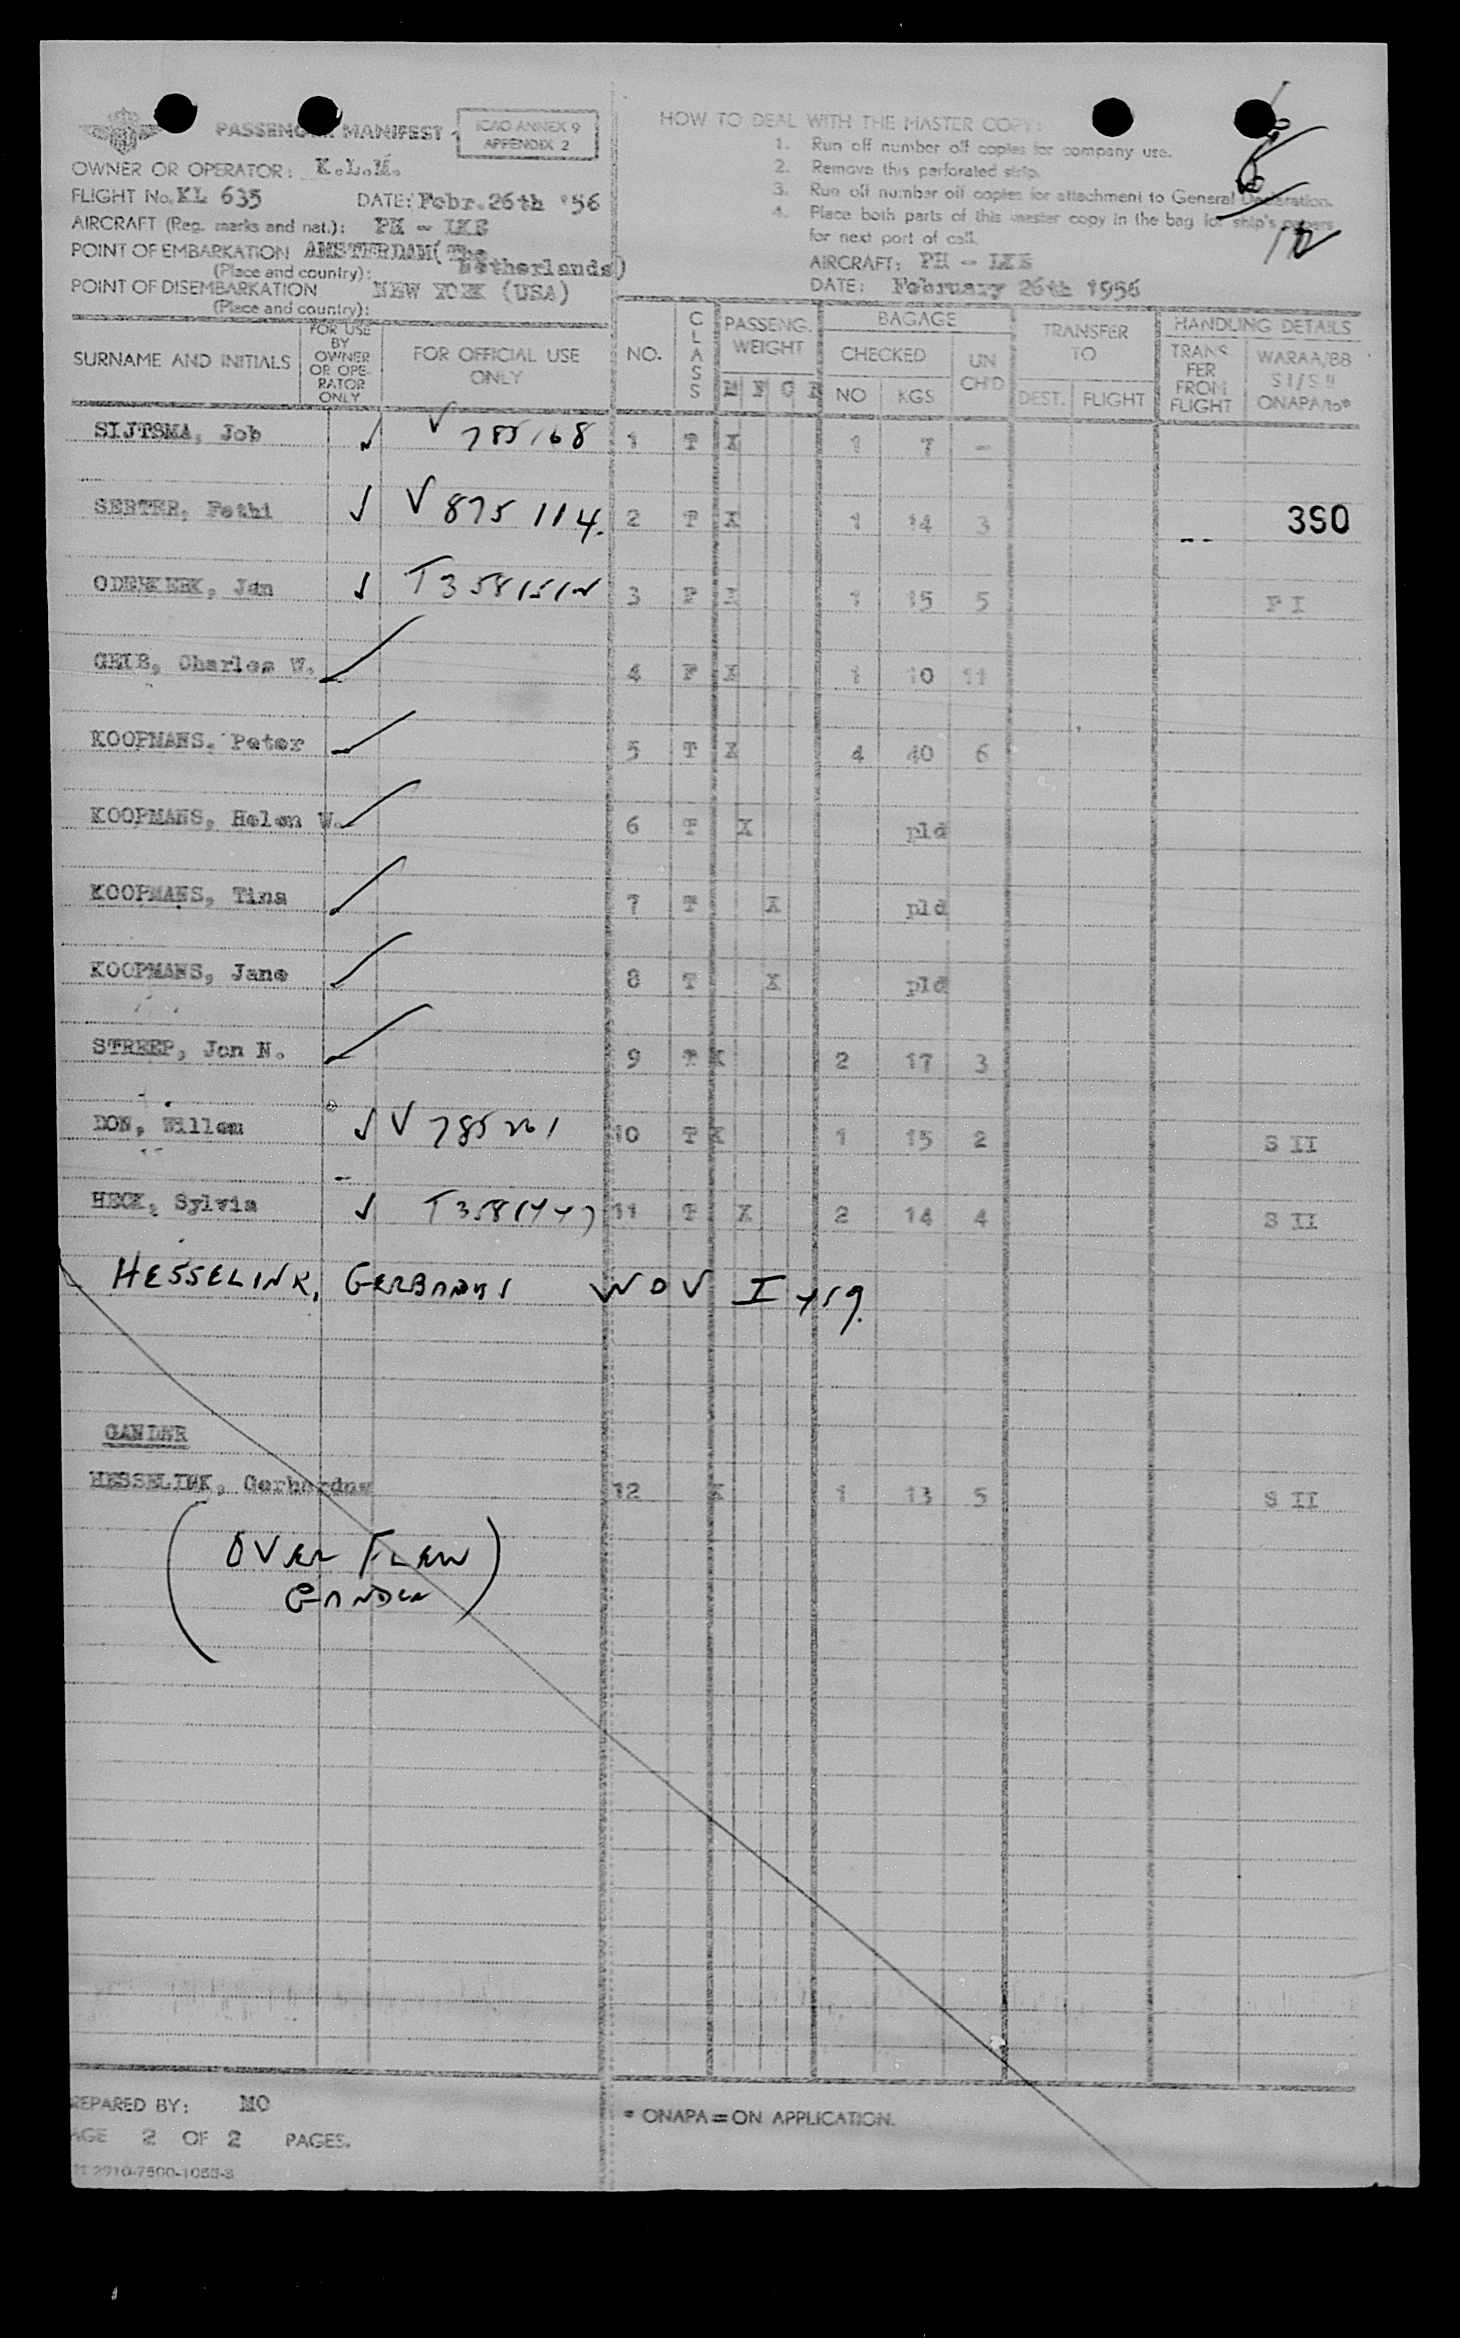 PASSENGER MANIFEST -
ICAO ANNEX 9
APPENDIX 2
OWNER OR OPERATOR: K.L.M.
FLIGHT No. KL 635 DATE: Febr. 26th '56
AIRCRAFT (Reg. marks and nat.): PH -
POINT OF EMBARKATION AMSTERDAM (The Netherlands)
(Place and country):
POINT OF DISEMBARKATION NEW YORK (USA)
(Place and country):
HOW TO DEAL WITH THE MASTER COPY:
1. Run off number off copies for company use.
2. Remove this perforated strip.
3. Run off number off copies for attachment to General Declaration.
4. Place both parts of this master copy in the bag for ship's papers
for next port of call.
AIRCRAFT: PH -
DATE: February 26th 1956
SURNAME AND INITIALS
FOR USE BY OWNER OR OPE-RATOR ONLY
FOR OFFICIAL USE ONLY
NO.
CLASS
PASSENG. WEIGHT
M F C B
BAGAGE
CHECKED
NO KGS
UN CH'D
TRANSFER TO
DEST. FLIGHT
HANDLING DETAILS
TRANS FER FROM FLIGHT
WARAA/BB S I / S II ONAPA/to*
SIJTSMA, Job V 785168 1 T X 1 7 -
SERTER, Fethi V 875 114. 2 T X 1 14 3 390
Jan 3 X 1 15 5 F I
Charles W. 4 X 1 10 11
KOOPMANS, Peter 5 T X 4 40 6
KOOPMANS, Helen W. 6 T X pld
KOOPMANS, Tina 7 T X pld
KOOPMANS, Jane 8 T X pld
STREEP, Jon N. 9 T X 2 17 3
DON, Willem V 785201 10 T X 1 15 2 S II
HECK, Sylvia 11 T X 2 14 4 S II
HESSELINK, GERHARDUS
GANDER
HESSELINK, Gerhardus 12 X 1 13 5 S II
(OVER FLEW
GANDER)
REPARED BY: MO
AGE 2 OF 2 PAGES.
* ONAPA = ON APPLICATION.